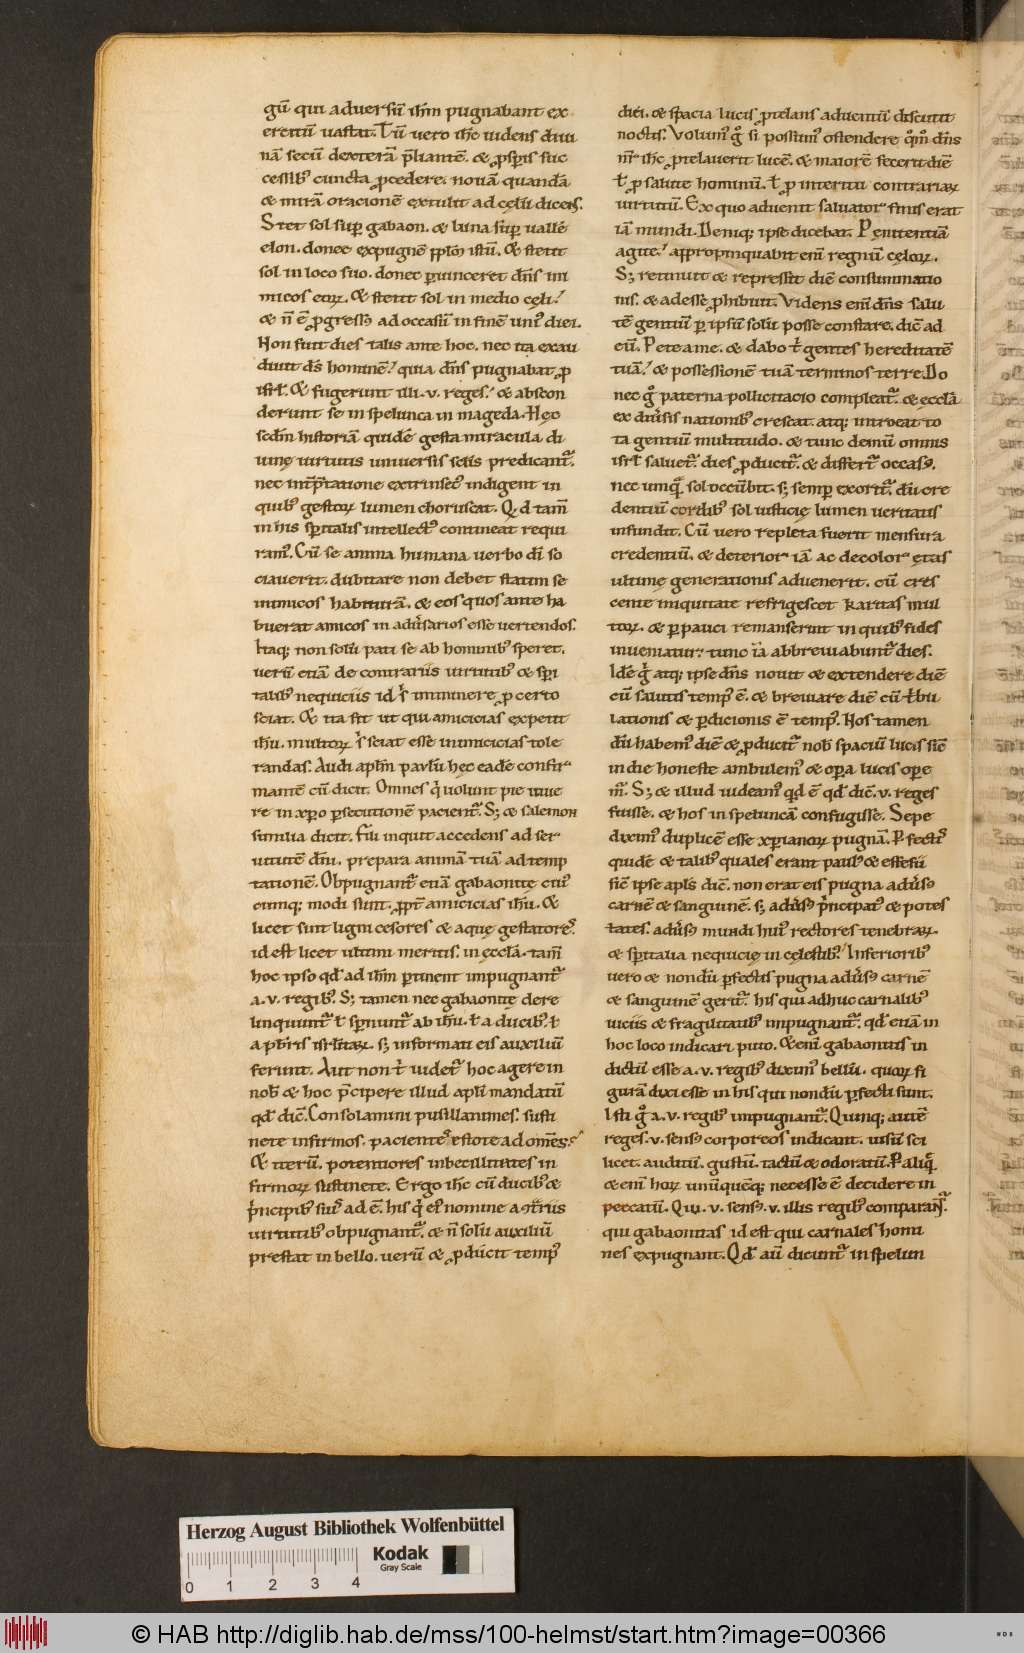 gū qui adversū ihm pugnabant ex
ercitū vastat. Tū vero ihc videns divi
nā secū dexterā p̄liantē. & ꝓsp̄is suc
cessibꝰ cuncta ꝓcedere. novā quandā
& mirā oracionē extulit ad cęlū dicens.
Stet sol suꝑ gabaon. & luna suꝑ vallē
elon. donec expugnē pplm istū. & stetit
sol in loco suo. donec ꝑvinceret dn̄s ini
micos eoꝝ. & stetit sol in medio cęli.
& n̄ ē ꝓgressꝰ ad occasū in finē uniꝰ diei.
Non fuit dies talis ante hoc. nec ita exau
divit ds̄ hominē. quia dn̄s pugnabat ꝓ
isrl. & fugerunt illi .v. reges. & abscon
derunt se in spelunca in mageda. Hęc
scdm historiā quidē gesta miracula di
vinę virtutis universis sclis predicant.
nec int̄p̄tatione extrinsecꝰ indigent in
quibꝰ gestoꝝ lumen choruscat. Qd tam̄
in his sp̄italis intellectꝰ contineat requi
ramꝰ. Cū se anima humana verbo dī so
ciaverit. dubitare non debet statim se
inimicos habiturā. & eos quos ante ha
buerat amicos in advsarios esse vertendos.
Itaq; non solū pati se ab hominibꝰ speret.
verū etiā de contrariis virtutibꝰ & spi
talibꝰ nequiciis id s̄ iminere ꝓ certo
sciat. & ita fit ut qui amicicias expetit
ihu. multoꝝ s̄ sciat esse inimicicias tole
randas. Audi aplm paulū hęc eadē confir
mantē cū dicit. Omnes qi volunt pie vive
re in xpo ꝑsecutionē pacient. S; & salemon
similia dicit. fili inquit accedens ad ser
vitutē dni. prepara animā tuā ad temp
tationē. Obpugnant etiā gabaonitę cuiꝰ
cumq; modi sunt. ꝓpt amicicias ihu. &
licet sint ligni cesores & aquę gestatores.
id est licet ultimi meritis. in ęccla. tam̄
hoc ipso qd ad ihm ꝑtinent impugnant
a .v. regibꝰ. S; tamen nec gabaonitę dere
linquunt ł spnunt ab ihu. ł a ducibꝰ. ł
a pbris isrlitaꝝ. s; infirmati eis auxiliū
ferunt. Aut non t videt hoc agere in
nob & hoc p̄cipere illud apli mandatū
qd dic. Consolamini pusillanimes. susti
nete infirmos. pacientes estote ad omēs.
& iterū. potentiores inbecillitates in
firmoꝝ sustinete. Ergo ihc cū ducibꝰ &
pncipibꝰ suis ad ē. his qi ei nomine a ɔtriis
virtutibꝰ obpugnant. & n̄ solū auxiliū
prestat in bello. verū & ꝓducit tempꝰ
diei. & spacia lucis ꝓtelans adventū discutit
noctis. Volumꝰ g si possumꝰ ostendere qmm dn̄s
nr ihc ꝓtelaverit lucē. & maiorē fecerit diē
ł ꝓ salute hominū. ł ꝓ interitu contrariaꝝ
virtutū. Ex quo advenit salvator finis erat
iā mundi. Deniq; ipse dicebat. Pęnitentiā
agite. appropinquabit eni regnū cęloꝝ.
S; retinuit & repressit diē consummatio
nis. & adesse ꝓhibuit. Videns eni dn̄s salu
tē gentiū ꝑ ipsū solū posse constare. dic ad
eū. Pete a me. & dabo t gentes hereditatē
tuā. & possessionē tuā terminos terre. Do
nec g paterna pollicitacio compleat. & ęccla
ex dīvsis nationibꝰ crescat. atq; introeat to
ta gentiū multitudo. & tunc demū omnis
isrl salvet. dies ꝓducit. & differt occasꝰ.
nec umq sol occūbit. s; semꝑ exort. dū cre
dentiū cordibꝰ sol iusticię lumen veritatis
infundit. Cū vero repleta fuerit mensura
credentiū. & deterior iā ac decolor ętas
ultimę generationis advenerit. cū cres
cente iniquitate refrigescet karitas mul
toꝝ. & ꝑpauci remanserint in quibꝰ fides
inveniatur. tunc iā abbreviabunt dies.
Idē g atq; ipse dn̄s novit & extendere diē
cū salutis tempꝰ ē. & breviare diē cū tbu
lationis & ꝑdicionis ē tempꝰ. Nos tamen
dū habemꝰ diē & ꝓducit nob spaciū lucis sic
in die honeste ambulemꝰ & oꝑa lucis oꝑe
mꝰ. S; & illud videamꝰ quid ē qd dic .v. reges
fuisse. & hos in speluncā confugisse. Sepe
diximꝰ duplicē esse xpianoꝝ pugnā. ꝑfectis
quidē & talibꝰ quales erant paulꝰ & effesii
sic ipse apls dic. non erat eis pugna advsꝰ
carnē & sanguinē. s; advsꝰ pncipatꝰ & potes
tates. advsꝰ mundi huiꝰ rectores tenebraꝝ.
& sp̄italia nequicię in cęlestibꝰ. Inferioribꝰ
vero & nondū ꝑfectis pugna advsꝰ carnē
& sanguinē gerit. his qui adhuc carnalibꝰ
viciis & fragilitatibꝰ impugnant. qd etiā in
hoc loco indicari puto. & eni gabaonitis in
dictū esse a .v. regibꝰ diximꝰ bellū. quoꝝ fi
gurā duci esse in his qui nondū ꝑfecti sunt.
Isti g a .v. regibꝰ impugnant. Quinq; autē
reges .v. sensꝰ corporeos indicant. visū sci
licet. auditū. gustū. tactū & odoratū. ꝑ aliq
& eni hoꝝ unūquęq; necesse ē decidere in
peccatū. Qui .v. sensꝰ .v. illis regibꝰ comparant.
qui gabaonitas id est qui carnales homi
nes expugnant. Qd aū dicunt in spelun
Herzog August Bibliothek Wolfenbüttel
Kodak
Gray Scale
0 1 2 3 4
© HAB http://diglib.hab.de/mss/100-helmst/start.htm?image=00366